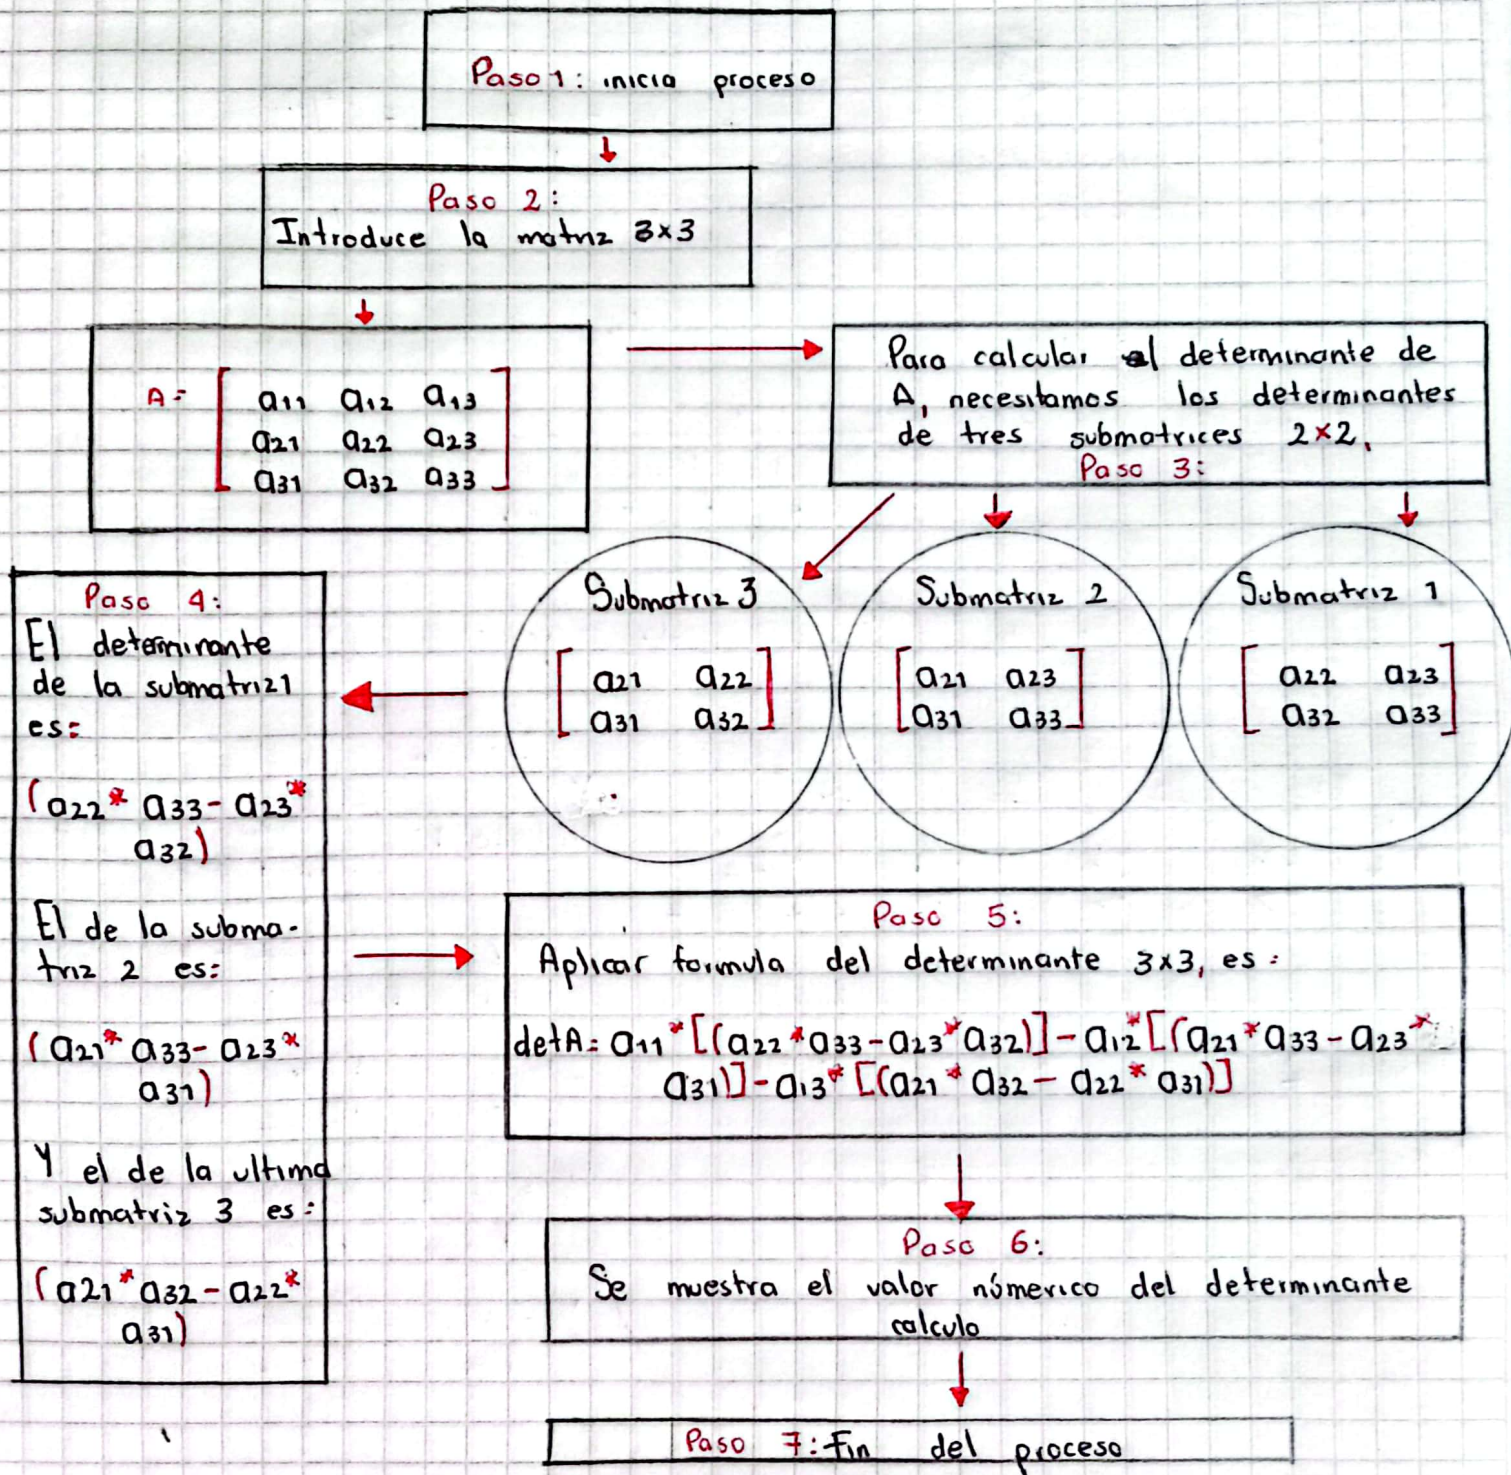 Paso 1: inicia proceso
Paso 2:
Introduce la matriz 3x3
A= [ a11 a12 a13
a21 a22 a23
a31 a32 a33 ]
Para calcular el determinante de
A, necesitamos los determinantes
de tres submatrices 2x2.
Paso 3:
Submatriz 3
[ a21 a22
a31 a32 ]
Submatriz 2
[ a21 a23
a31 a33 ]
Submatriz 1
[ a22 a23
a32 a33 ]
Paso 4:
El determinante
de la submatriz1
es:
(a22* a33- a23*
a32)
El de la subma-
triz 2 es:
(a21* a33- a23*
a31)
Y el de la ultima
submatriz 3 es:
(a21* a32- a22*
a31)
Paso 5:
Aplicar formula del determinante 3x3, es:
detA= a11*[(a22*a33-a23*a32)]-a12*[(a21*a33-a23*
a31)]-a13*[(a21*a32-a22*a31)]
Paso 6:
Se muestra el valor númerico del determinante
calculo
Paso 7: Fin del proceso